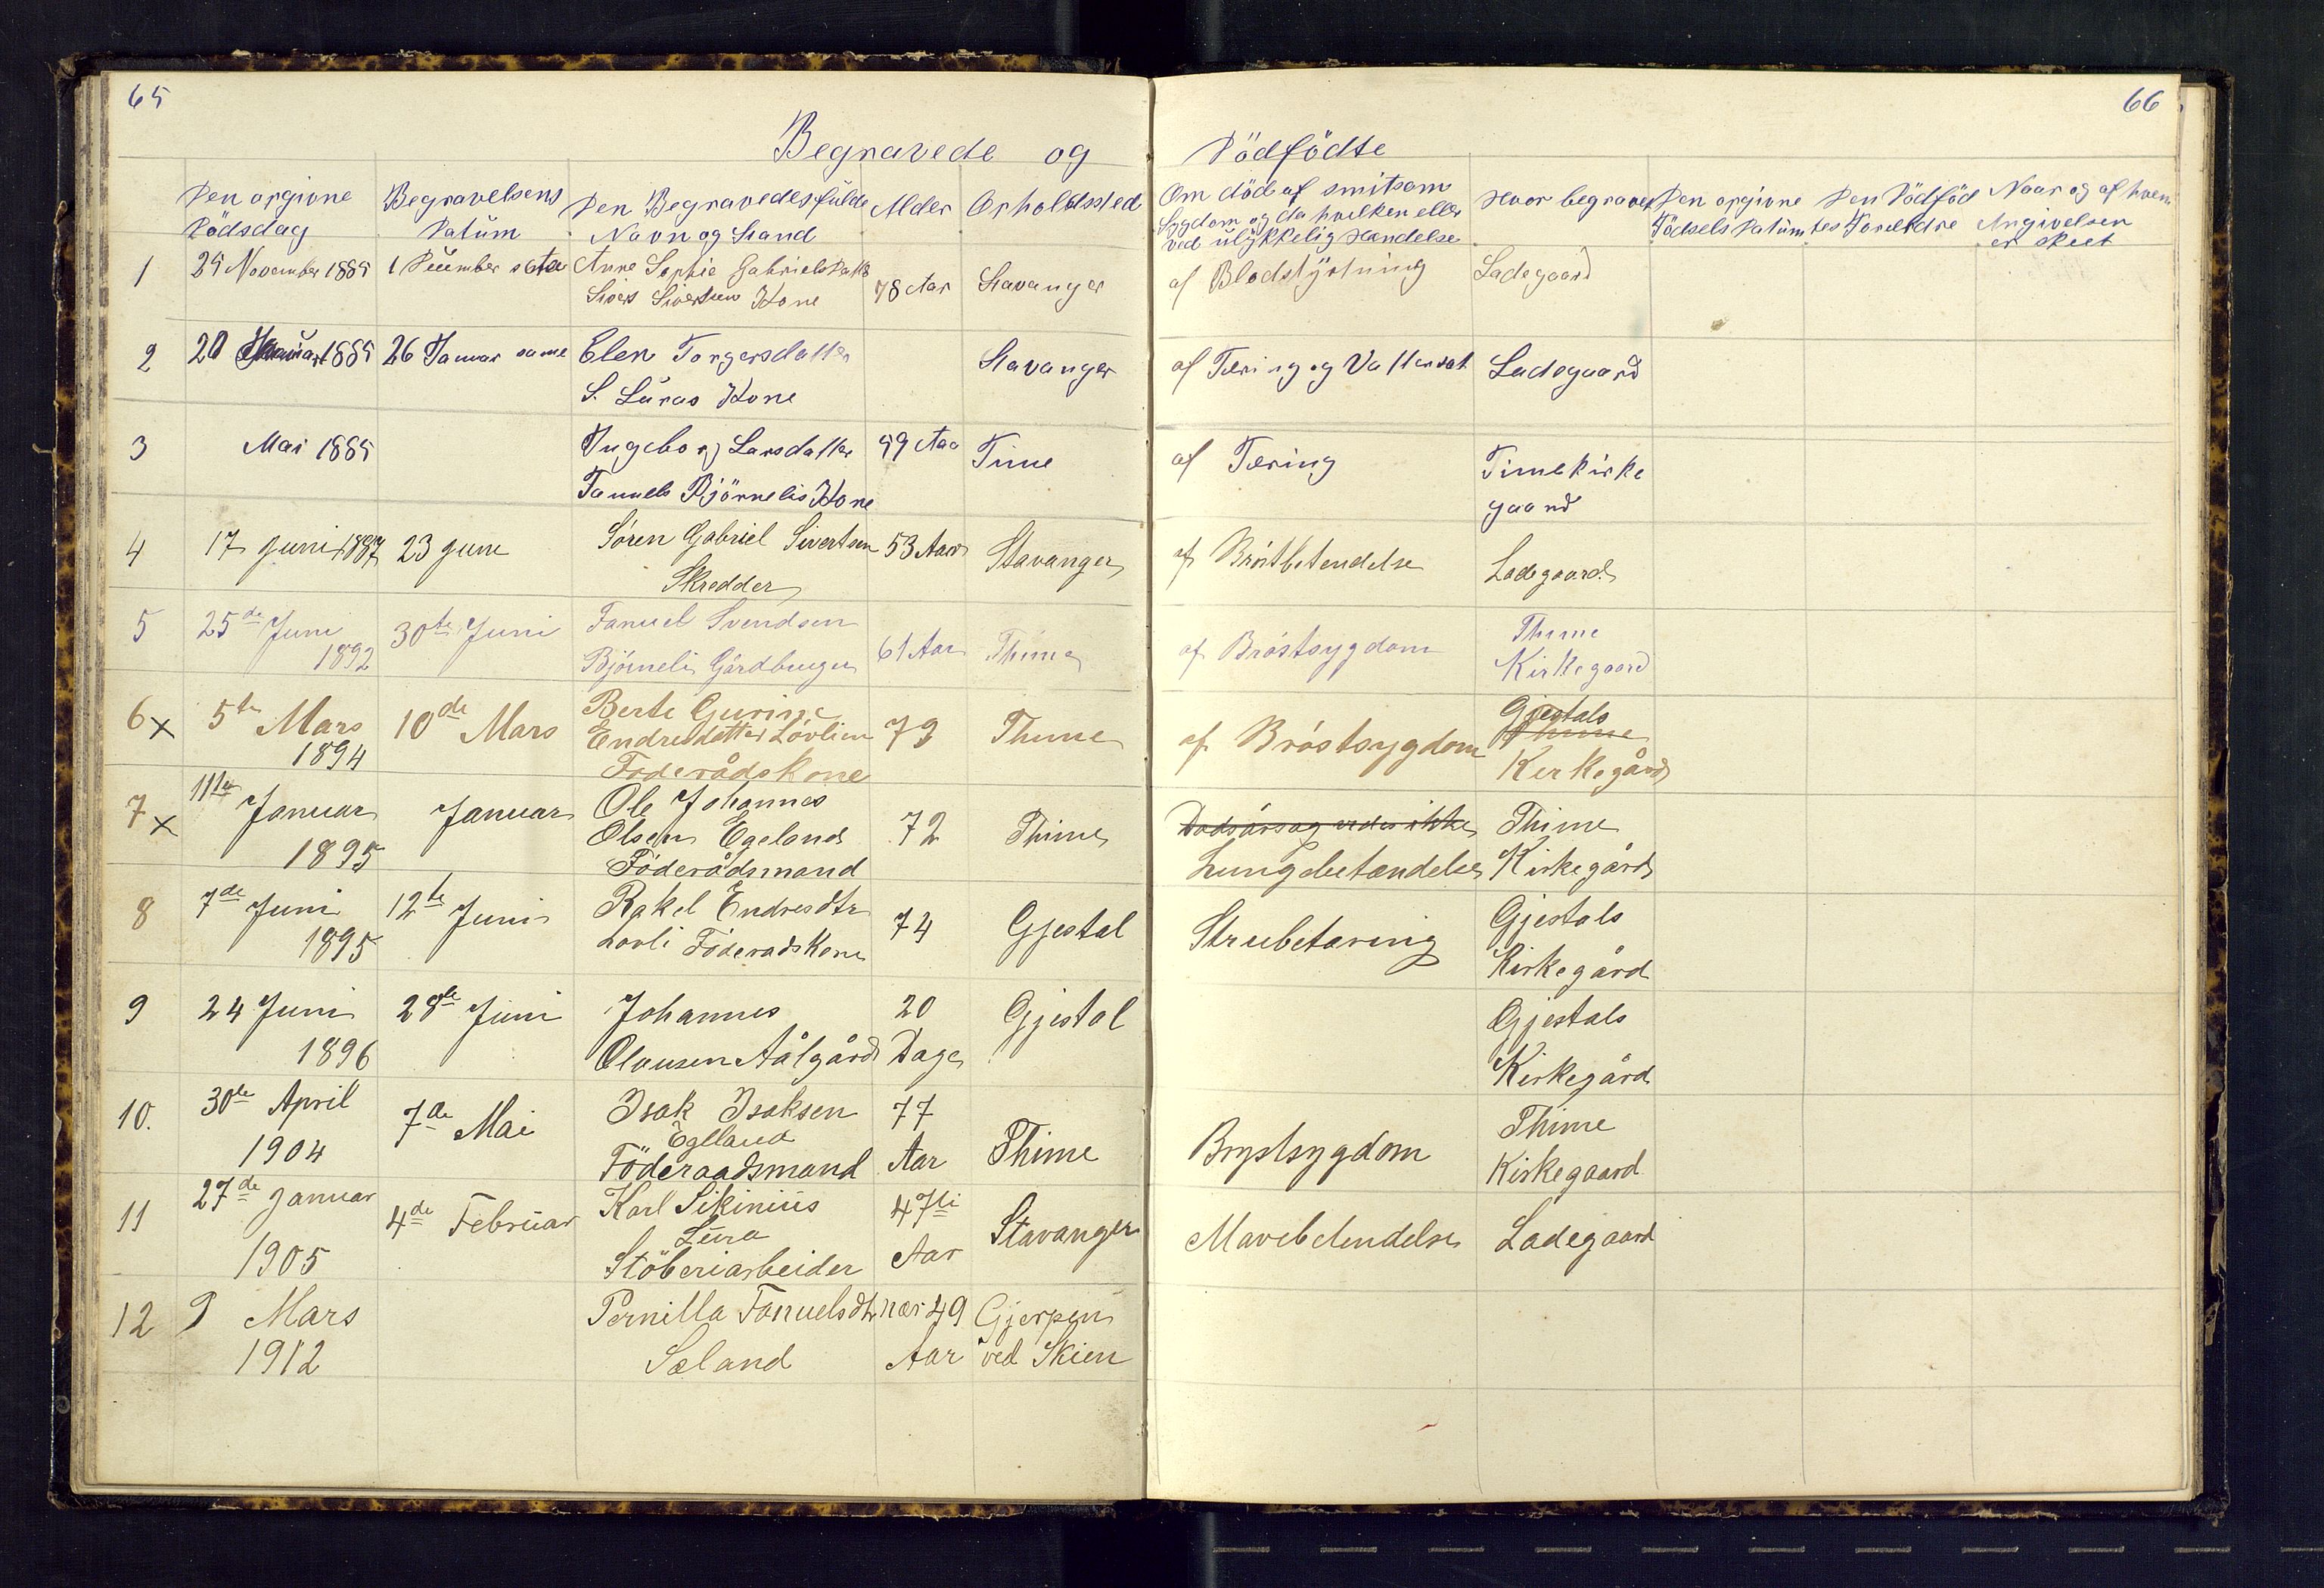 65
66
Begravede og Dödfödte
Den opgivne Dödsdag
Begravelsens Datum
Den Begravedes fulde Navn og Stand
Alder
Opholdssted
Om död af smitsom Sygdom og da hvilken eller ved ulykkelig Hændelse
Hvor begravet
Den opgivne Födsels Datum
Den Dödfödtes Foreldre
Naar og af hvem Angivelsen er skeet
1 25 November 1885 1 December Anne Sophie Gabriels Datter 78 Aar Stavanger af Blodstyrtning Ladegaard
Sivert Sivertsens Kone
2 20 Januar 1885 26 Januar same Elen Torgersdatter Stavanger af Tæring og Vattersot Ladegaard
S. Luras Kone
3 Mai 1885 Ingeborg Larsdatter 59 Aar Time af Tæring Timekirke
Fanuels Björnelis Kone gaard
4 17 juni 1887 23 june Sören Gabriel Sivertsen 53 Aar Stavanger af Bröstbetendelse Ladegaard
Skredder
5 25de Juni 30te Juni Fanuel Svendsen 61 Aar Thime af Bröstsygdom Thime
1892 Björneli Gårdbruger Kirkegaard
6 x 5te Mars 10de Mars Berte Gurine 79 Thime af Bröstsygdom Gjestals
1894 Endresdatter Lövlien Thime
Föderådskone Kirkegård
7 x 11te Januar Januar Ole Johannes 72 Thime Dødsårsag erdes ikke Thime
1895 Olsen Egeland Lungebetændelse Kirkegård
Föderådsmand
8 7de Juni 12te Juni Rakel Endresdtr 74 Gjestal Strubetæring Gjestals
1895 Lovli Föderadskone Kirkegård
9 24 Juni 28de Juni Johannes 20 Gjestal Gjestals
1896 Olausen Aålgård Dage Kirkegård
10. 30de April 7de Mai Isak Isaksen 77 Thime Brystsygdom Thime
1904 Egeland Aar Kirkegaard
Föderaadsmand
11 27de Januar 4de Februar Karl Sikinius 47ti Stavanger Mavebetendelse Ladegaard
1905 Lura Aar
Stöberiarbeider
12 9 Mars Pernilla Fanuelsdtr nær 49 Gjerpen
1912 Sæland Aar ved Skien